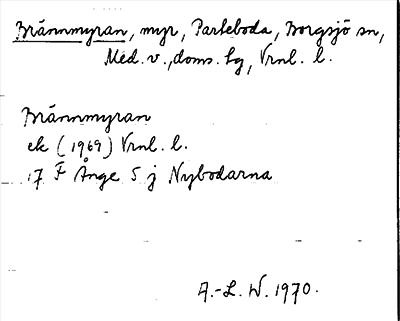 Brännmyran, myr, Parteboda, Borgsjö sn,
Med. v., doms. hg, Vrnl. l.
Brännmyran
ek (1969) Vrnl. l.
17 F Ånge 5 j Nybodarna
A.-L. W. 1970.